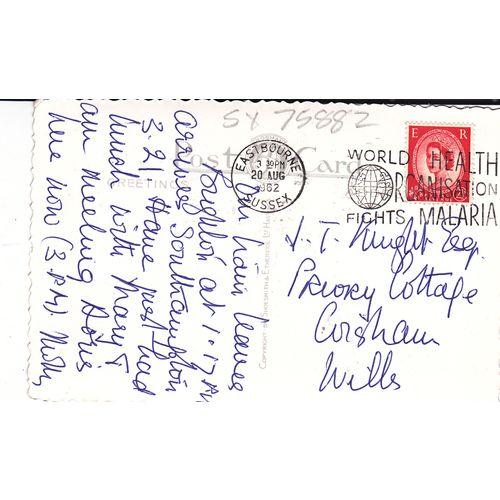 SX 75882
Post Card
GREETINGS
EASTBOURNE
3 30PM
20 AUG
1962
SUSSEX
E R
WORLD HEALTH
ORGANISATION
FIGHTS MALARIA
Our train leaves
Brighton at 1.17
arrives Southampton
3.21. Have just had
lunch with Mary &
am meeting Doris
here now (3.P.M).
J. T. Knight Esq.
Priory Cottage
Corsham
Wilts